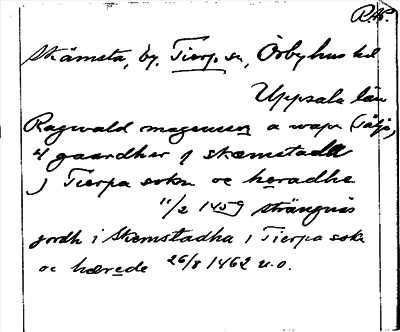 R.A.P.
Skämsta, by, Tierp sn, Örbyhus hd
Uppsala län
Ragwald magnusson a wapn (säljer)
4 gaardher j skæmstadd
j Tierpa sokn oc hæradhe
11/2 1459 strängnäs
jordh i Skemstadha i Tierpa sokn
oc hærede 26/8 1462 u.o.